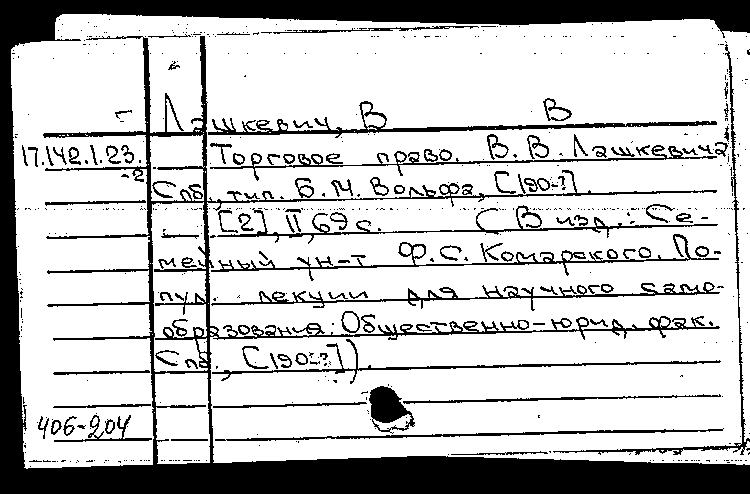 Лашкевич, В В
17.142.1.23. Торговое право. В.В. Лашкевича
-2 Спб., тип. Б.М. Вольфа, [190-?].
[2], II, 69 с. (В изд.: Се-
мейный ун-т Ф.С. Комарского. По-
пул. лекции для научного само-
образования: Общественно-юрид. фак.
Спб., [190-?]).
406-204